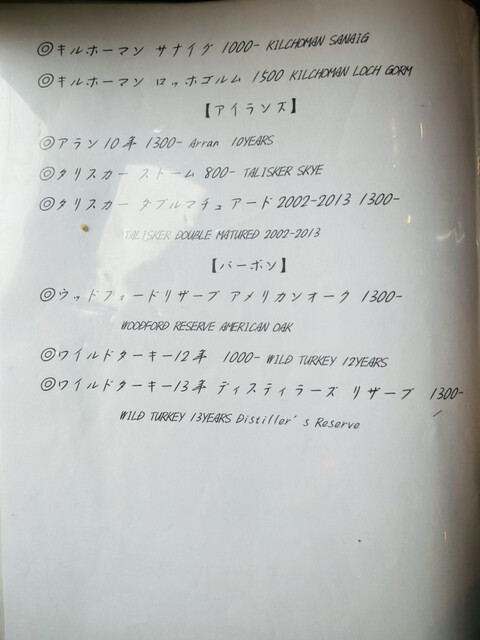 ◎キルホーマン サナイグ 1000- KILCHOMAN SANAIG
◎キルホーマン ロッホゴルム 1500 KILCHOMAN LOCH GORM
【アイランズ】
◎アラン10年 1300- Arran 10YEARS
◎タリスカー ストーム 800- TALISKER SKYE
◎タリスカー ダブルマチュアード 2002-2013 1300-
TALISKER DOUBLE MATURED 2002-2013
【バーボン】
◎ウッドフォードリザーブ アメリカンオーク 1300-
WOODFORD RESERVE AMERICAN OAK
◎ワイルドターキー12年 1000- WILD TURKEY 12YEARS
◎ワイルドターキー13年 ディスティラーズ リザーブ 1300-
WILD TURKEY 13YEARS Distiller's Reserve